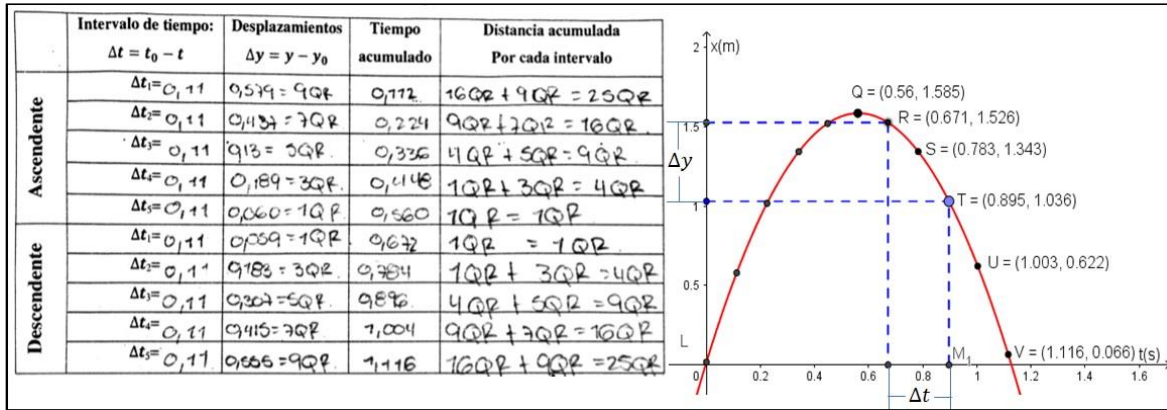 Intervalo de tiempo: Desplazamientos Tiempo Distancia acumulada
Δt = t₀ − t Δy = y − y₀ acumulado Por cada intervalo
Ascendente
Δt₁= 0,11 0,579 = 9QR 0,112 16QR + 9QR = 25QR
Δt₂= 0,11 0,437 = 7QR 0,224 9QR + 7QR = 16QR
Δt₃= 0,11 = 5QR 0,336 4QR + 5QR = 9QR
Δt₄= 0,11 0,189 = 3QR. 0,448 1QR + 3QR = 4QR
Δt₅= 0,11 0,060 = 1QR 0,560 1QR = 1QR
Descendente
Δt₁= 0,11 0,059 = 1QR 0,672 1QR = 1QR
Δt₂= 0,11 0,183 = 3QR 0,784 1QR + 3QR = 4QR
Δt₃= 0,11 0,307 = 5QR 0,896 4QR + 5QR = 9QR
Δt₄= 0,11 0,415 = 7QR 1,004 9QR + 7QR = 16QR
Δt₅= 0,11 0,555 = 9QR 1,116 16QR + 9QR = 25QR
2 x(m)
Q = (0.56, 1.585)
1.5 R = (0.671, 1.526)
Δy
S = (0.783, 1.343)
1 T = (0.895, 1.036)
U = (1.003, 0.622)
0.5
L M₁ V = (1.116, 0.066) t(s)
0 0.2 0.4 0.6 0.8 1 1.2 1.4 1.6
Δt